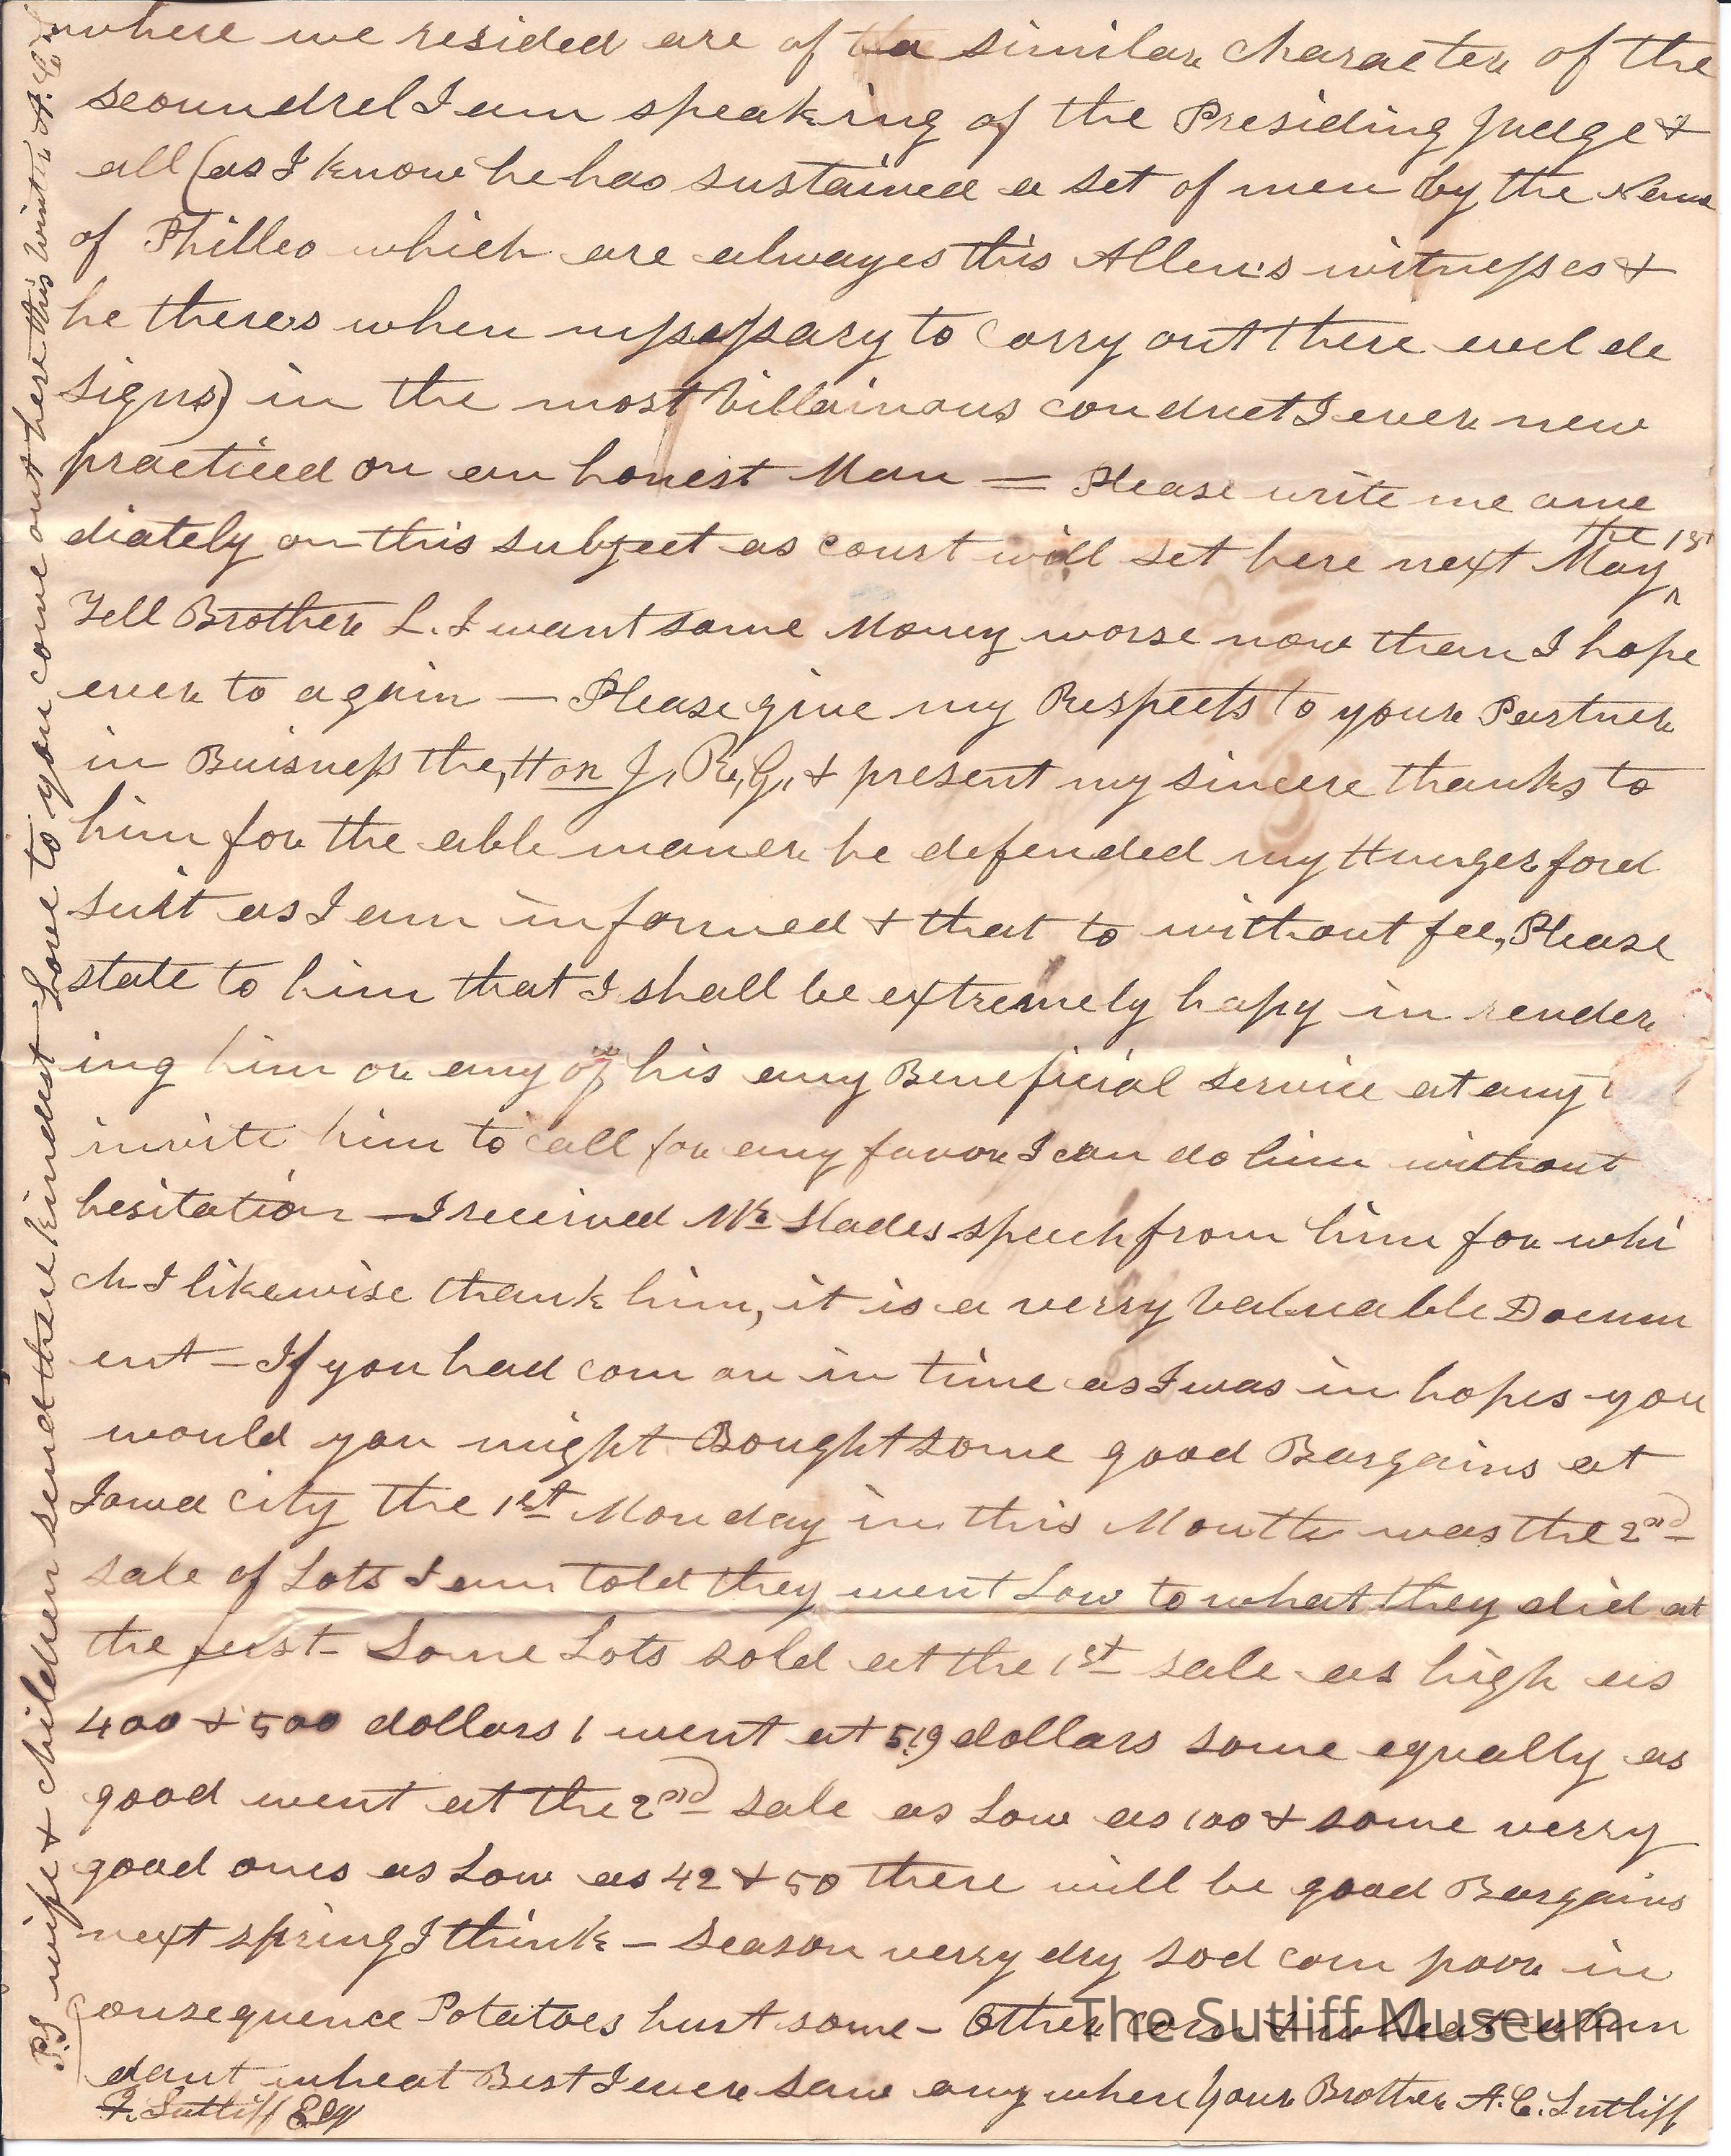 where we resided are of a similar character of the
scoundrel I am speaking of the Presiding Judge &
all (as I know he has sustained a set of men by the Name
of Philleo which are allwayes this Allen's witnesses &
he theres when nessessary to Carry out there evel de
signs) in the most Villainous conduct I ever new
practiced on an honest Man = Please write me ame
diately on this subject as court will set here next May the 1st
Tell Brother L. I want some Money worse now than I hope
ever to again — Please give my Respects to your Partner
in Buisness the, Hon J, R, G, & present my sincere thanks to
him for the able maner he defended my Hungerford
suit as I am informed & that to without fee, Please
state to him that I shall be extremely hapy in render
ing him or any of his any Beneficial service at any
invite him to call for any favor I can do him without
hesitation — I received Mr Slades speech from him for whi
ch I likewise thank him, it is a verry Valuable Docum
ent — If you had com on in time as I was in hopes you
would you might Bought some good Bargains at
Iowa City the 1st Monday in this Month was the 2nd
sale of Lots I am told they went Low to what they did at
the first — Some Lots sold at the 1st sale as high as
400 & 500 dollars 1 went at 519 dollars some equally as
good went at the 2nd sale as Low as 100 & some verry
good ones as Low as 42 & 50 there will be good Bargains
next spring I think — Season verry dry sod corn poor in
Consequence Potatoes hurt some — Other corn & wheat abun
dant wheat Best I ever saw any where Your Brother A. C. Sutliff
F. Sutliff Esq
PS wife & children send their kindest Love to you come out here this Winter A. C. S
The Sutliff Museum